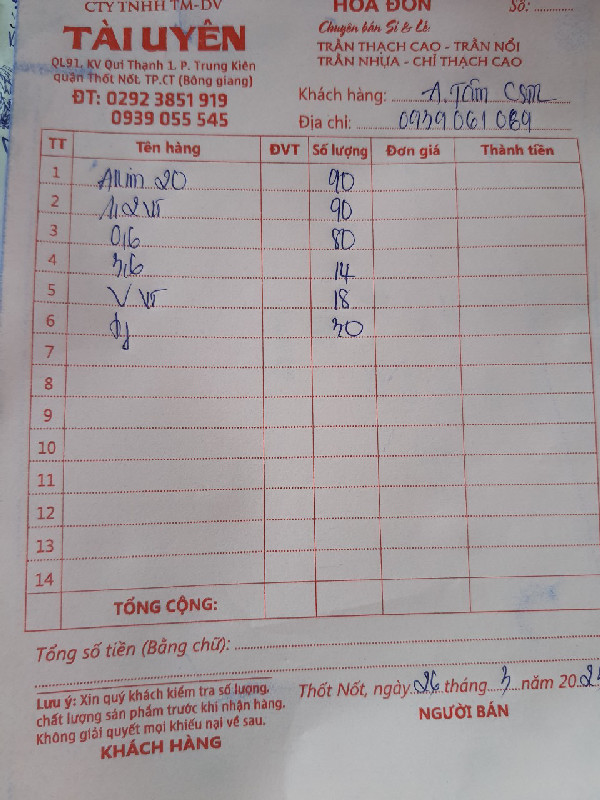 CTY TNHH TM-DV
TÀI UYÊN
QL91, KV Qui Thạnh 1, P. Trung Kiên
quận Thốt Nốt, TP.CT (Bông giang)
ĐT: 0292 3851 919
0939 055 545
HÓA ĐƠN
Số: ............
Chuyên bán Sỉ & Lẻ:
TRẦN THẠCH CAO - TRẦN NỔI
TRẦN NHỰA - CHỈ THẠCH CAO
Khách hàng: A. Tâm CSM
Địa chỉ: 0939 061 069
TT Tên hàng ĐVT Số lượng Đơn giá Thành tiền
1 20 90
2 1,2 VT 90
3 0,6 80
4 3,6 14
5 V VT 18
6 30
7
8
9
10
11
12
13
14
TỔNG CỘNG:
Tổng số tiền (Bằng chữ):
Lưu ý: Xin quý khách kiểm tra số lượng,
chất lượng sản phẩm trước khi nhận hàng.
Không giải quyết mọi khiếu nại về sau.
KHÁCH HÀNG
Thốt Nốt, ngày 26 tháng 3 năm 202
NGƯỜI BÁN